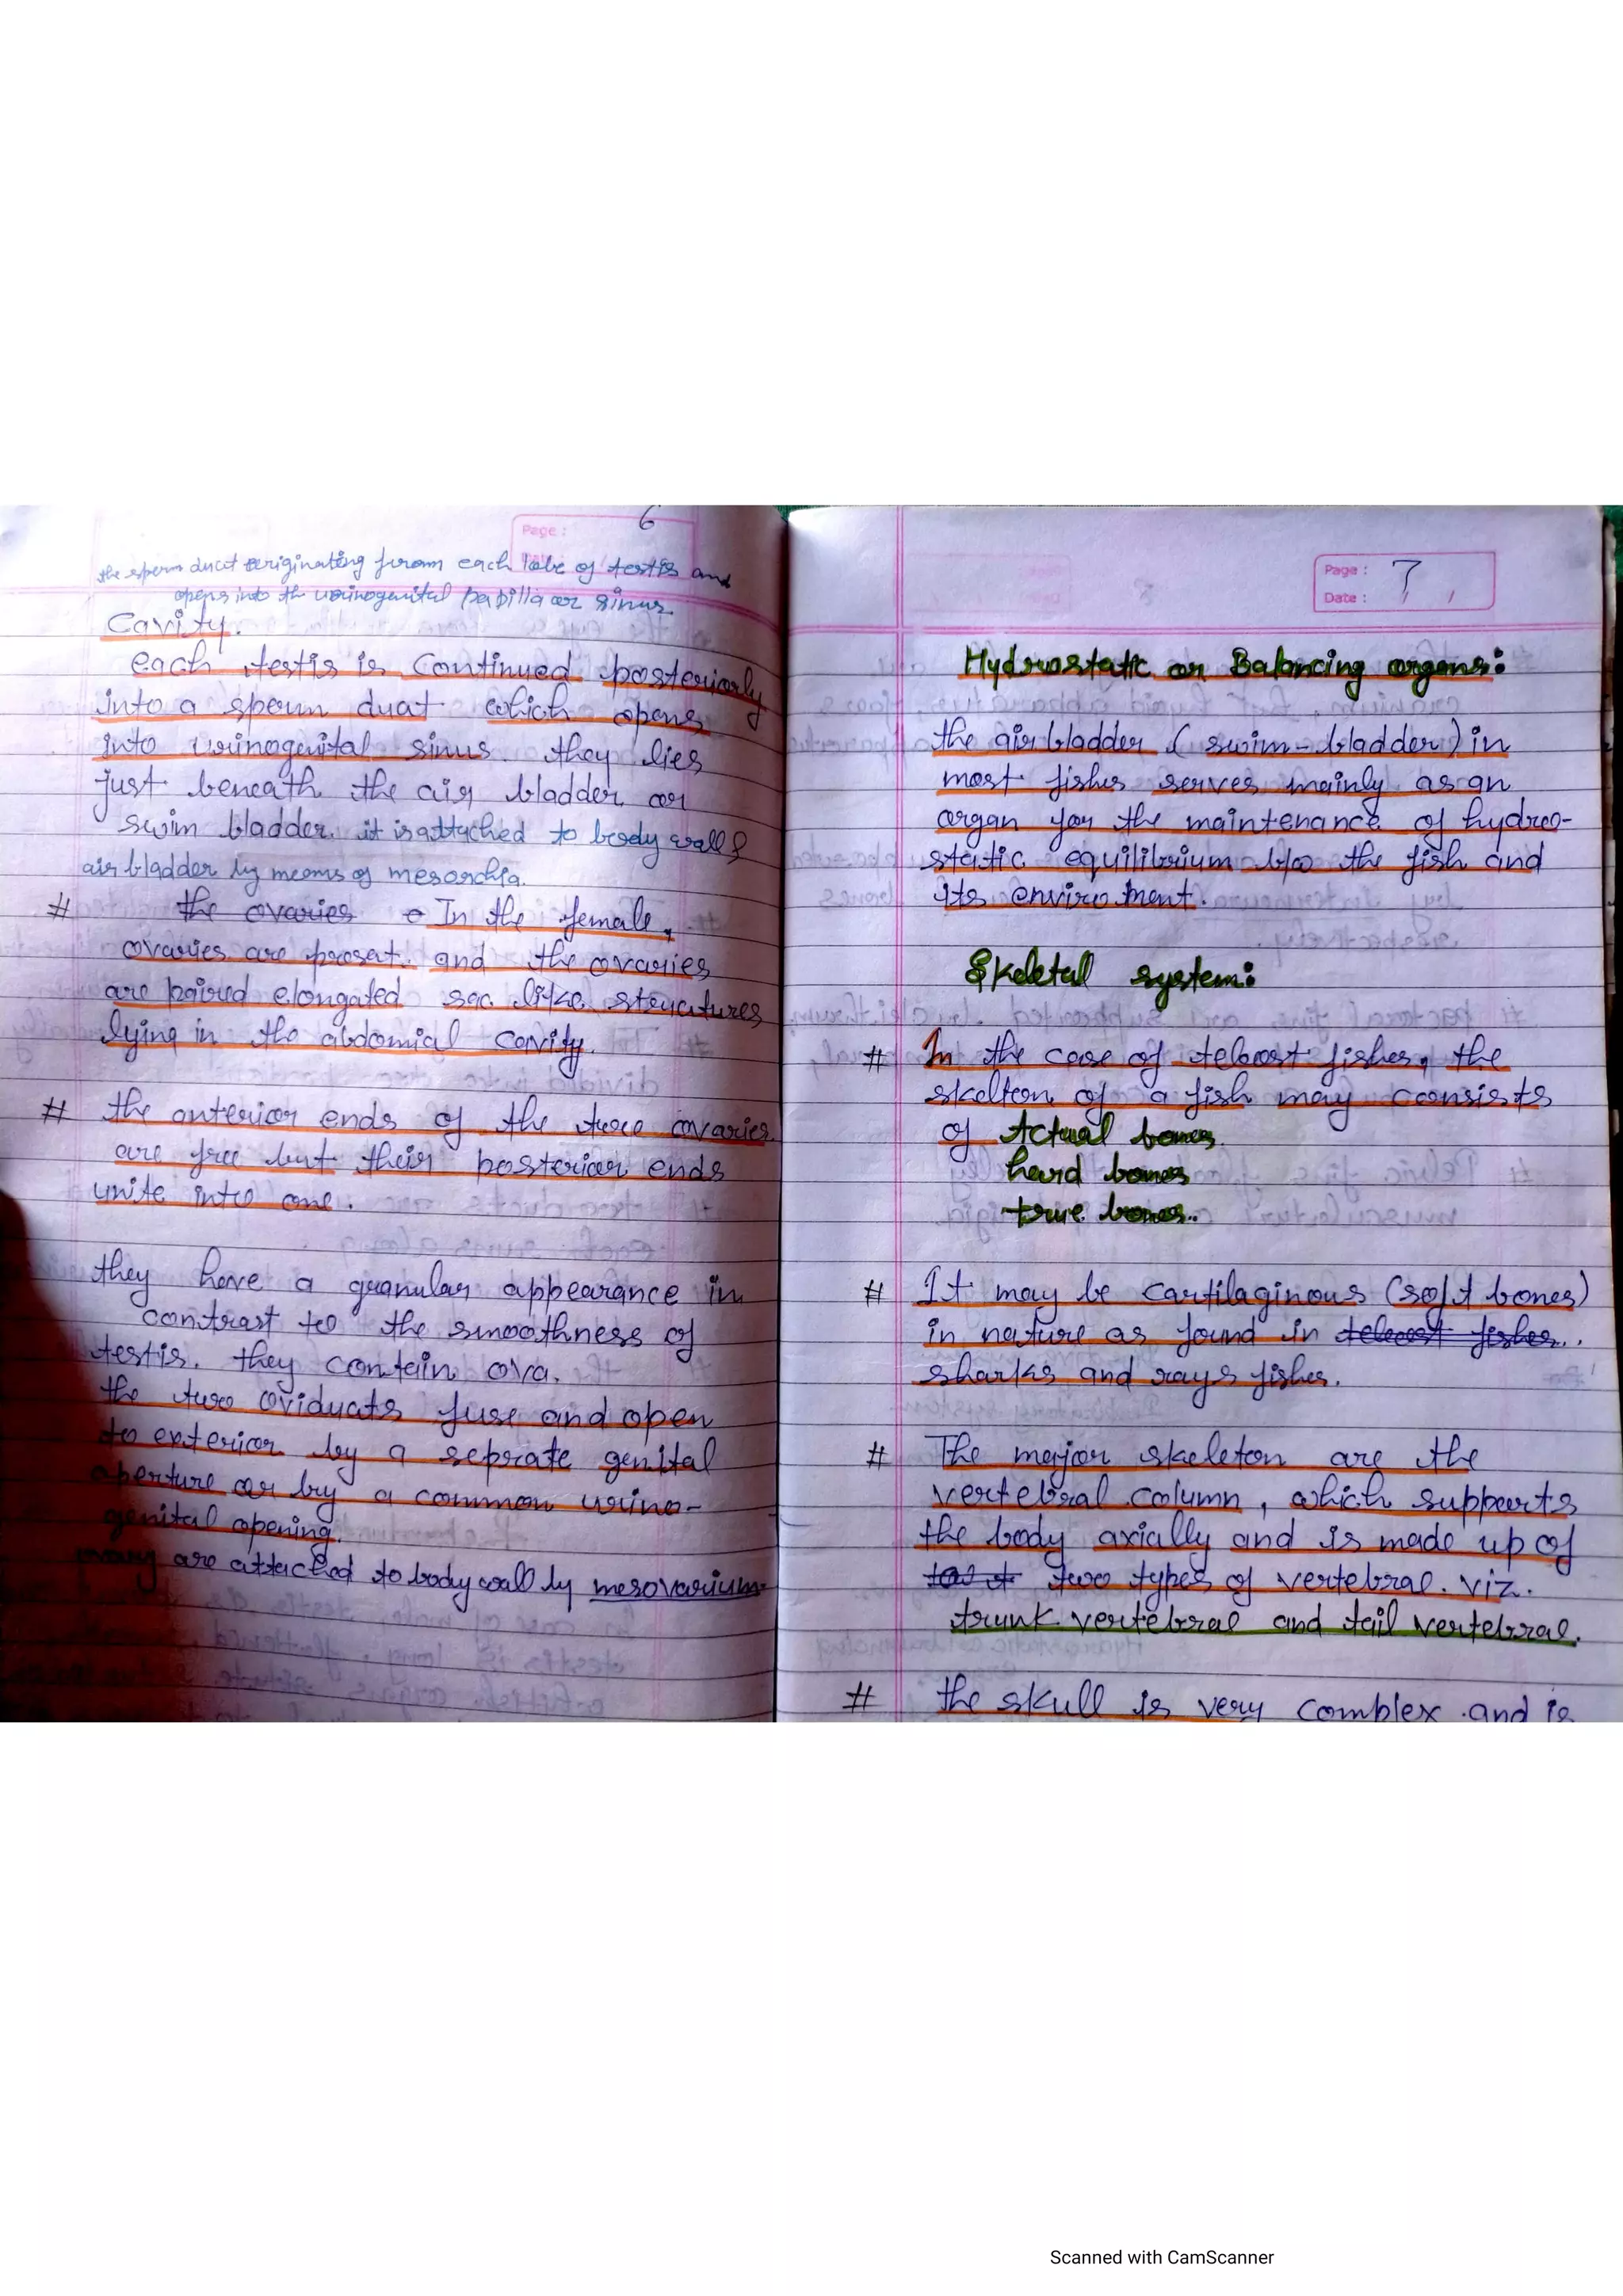 Page : 6
the sperm duct originating from each lobe of testis and
opens into the urinogenital papilla or sinus
Cavity.
each testis is Continued posteriorly
into a sperm duct which opens
into urinogenital sinus. they lies
just beneath the air bladder or
swim bladder. it is attached to body wall &
air bladder by means of mesorchia.
# the ovaries In the female,
ovaries are present. and the ovaries
are paired elongated sac like structures
lying in the abdomial cavity.
# the anterior ends of the two ovaries
are free but their posterior ends
unite into one.
they have a granular appearance in
contrast to the smoothness of
testis. they contain ova.
the two oviducts fuse and open
to exterior by a seprate genital
aperture or by a common urino-
genital opening.
are attached to body wall by mesovarium
Page : 7
Date : / /
Hydrostatic or Balancing organs:
the air bladder (swim-bladder) in
most fishes serves mainly as an
organ for the maintenance of hydro-
static equilibrium b/w the fish and
its enviroment.
Skeletal system:
# In the case of teleost fishes, the
skelton of a fish may consists
of Actual bones.
hard bones
true bones..
# It may be cartilaginous (soft bones)
in nature as found in teleost fishes..
sharks and rays fishes.
# The major skeleton are the
vertebral column, which supports
the body axially and is made up of
two types of vertebral. viz.
trunk vertebral and tail vertebral.
# the skull is very complex .and is
Scanned with CamScanner